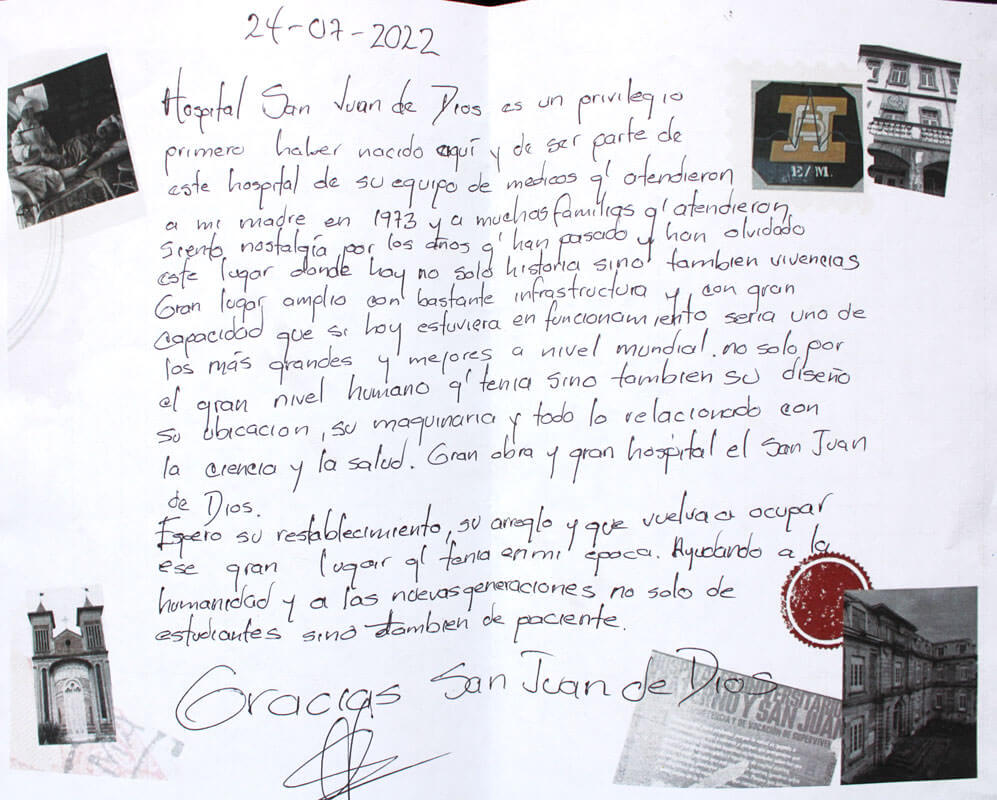 24-07-2022
Hospital San Juan de Dios es un privilegio
primero halver nacido aquí y de ser parte de
este hospital de su equipo de medicos q' atendieron
a mi madre en 1973 y a muchas familias q' atendieron,
siento nostalgía por los años q' han pasado y han olvidado
este lugar donde hay no solo historia sino tambien vivencias
Gran lugar amplio con bastante infrastructura y con gran
capacidad que si hoy estuviera en funcionamiento seria uno de
los más grandes y mejores a nivel mundial. no solo por
el gran nivel humano q' tenia sino tambien su diseño
su ubicacion, su maquinaria y todo lo relacionado con
la ciencia y la salud. Gran obra y gran hospital el San Juan
de Dios.
Espero su restablecimiento, su arreglo y que vuelva a ocupar
ese gran lugar q' tenia en mi época. Ayudando a la
humanidad y a las nuevas generaciones no solo de
estudiantes sino tambien de paciente.
Gracias San Juan de Dios
E/M.
Y SAN JUAN
Y DE VOCACIÓN DE